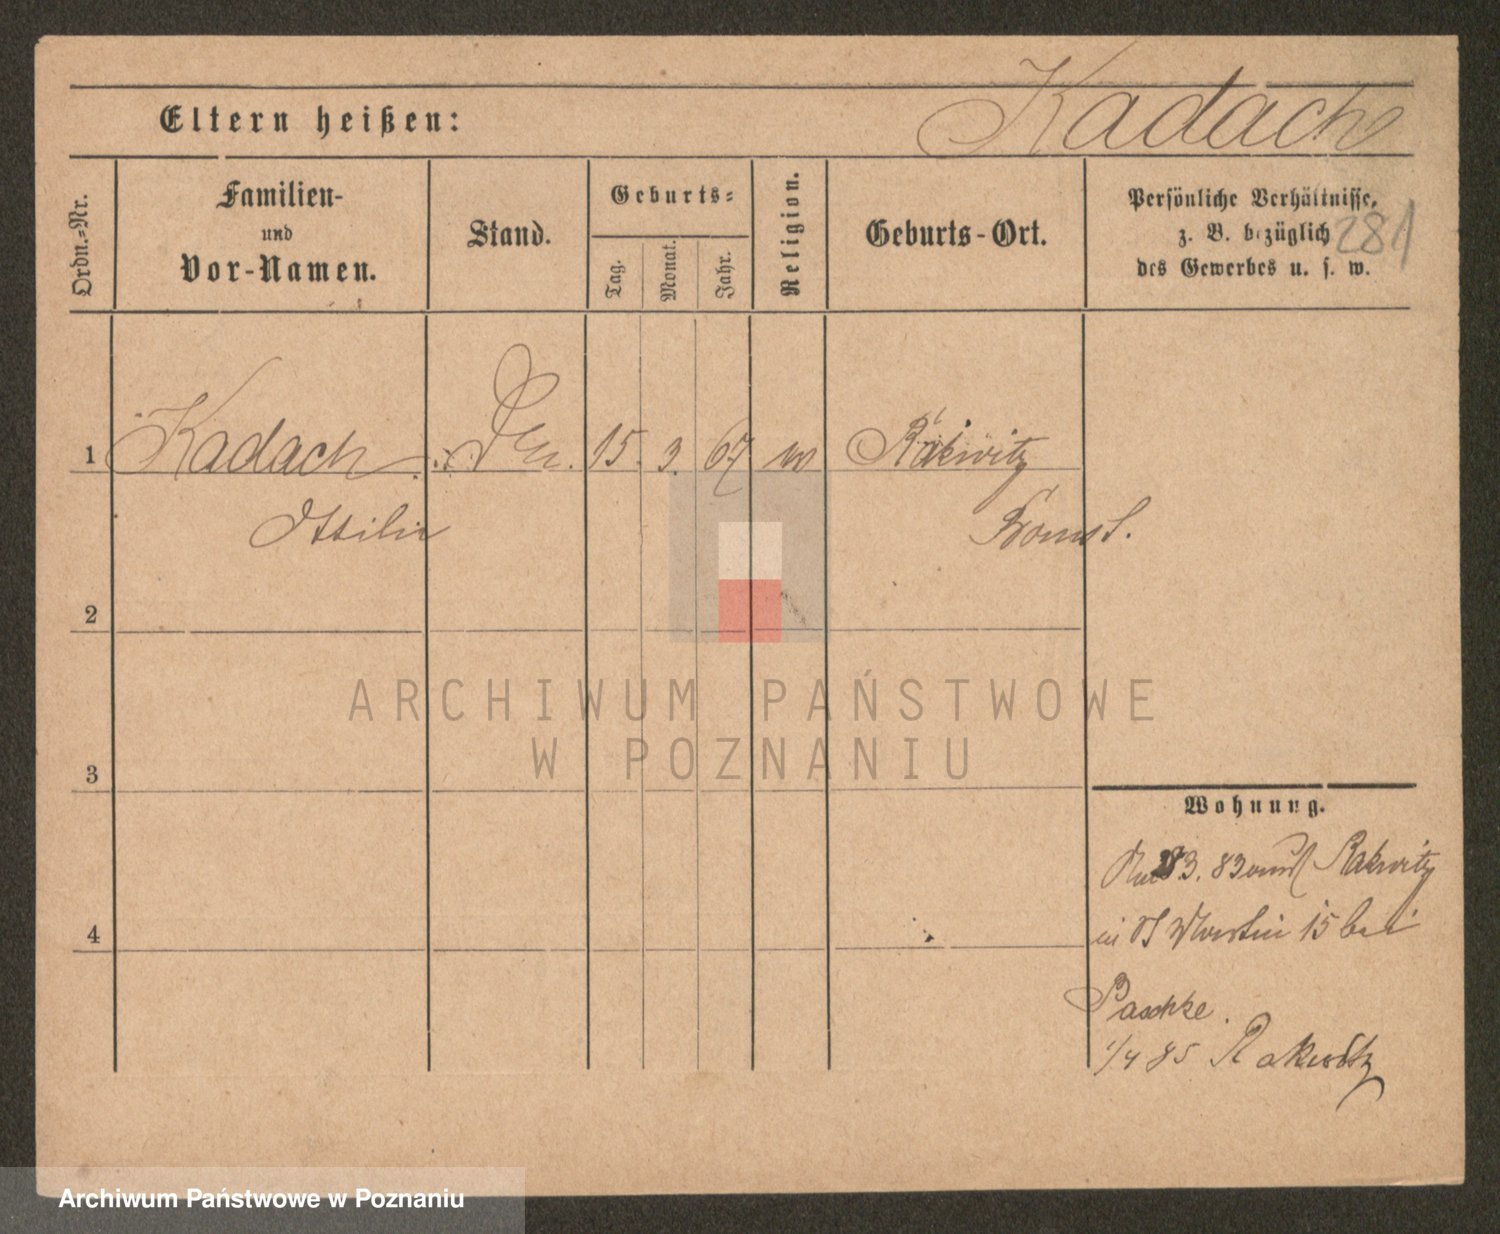 Kadach
Eltern heißen:
Ordn.-Nr.
Familien-
und
Vor-Namen.
Stand.
Geburts-
Tag.
Monat.
Jahr.
Religion.
Geburts-Ort.
Persönliche Verhältnisse,
z. B. bezüglich
des Gewerbes u. s. w.
281
1 Kadach 15. 3. 67 Rakwitz
Ottilie Bomst.
2
3
4
Wohnung.
83 Rakwitz
St Martin 15 bei
Paschke.
1/4 85 Rakwitz
ARCHIWUM PAŃSTWOWE
W POZNANIU
Archiwum Państwowe w Poznaniu